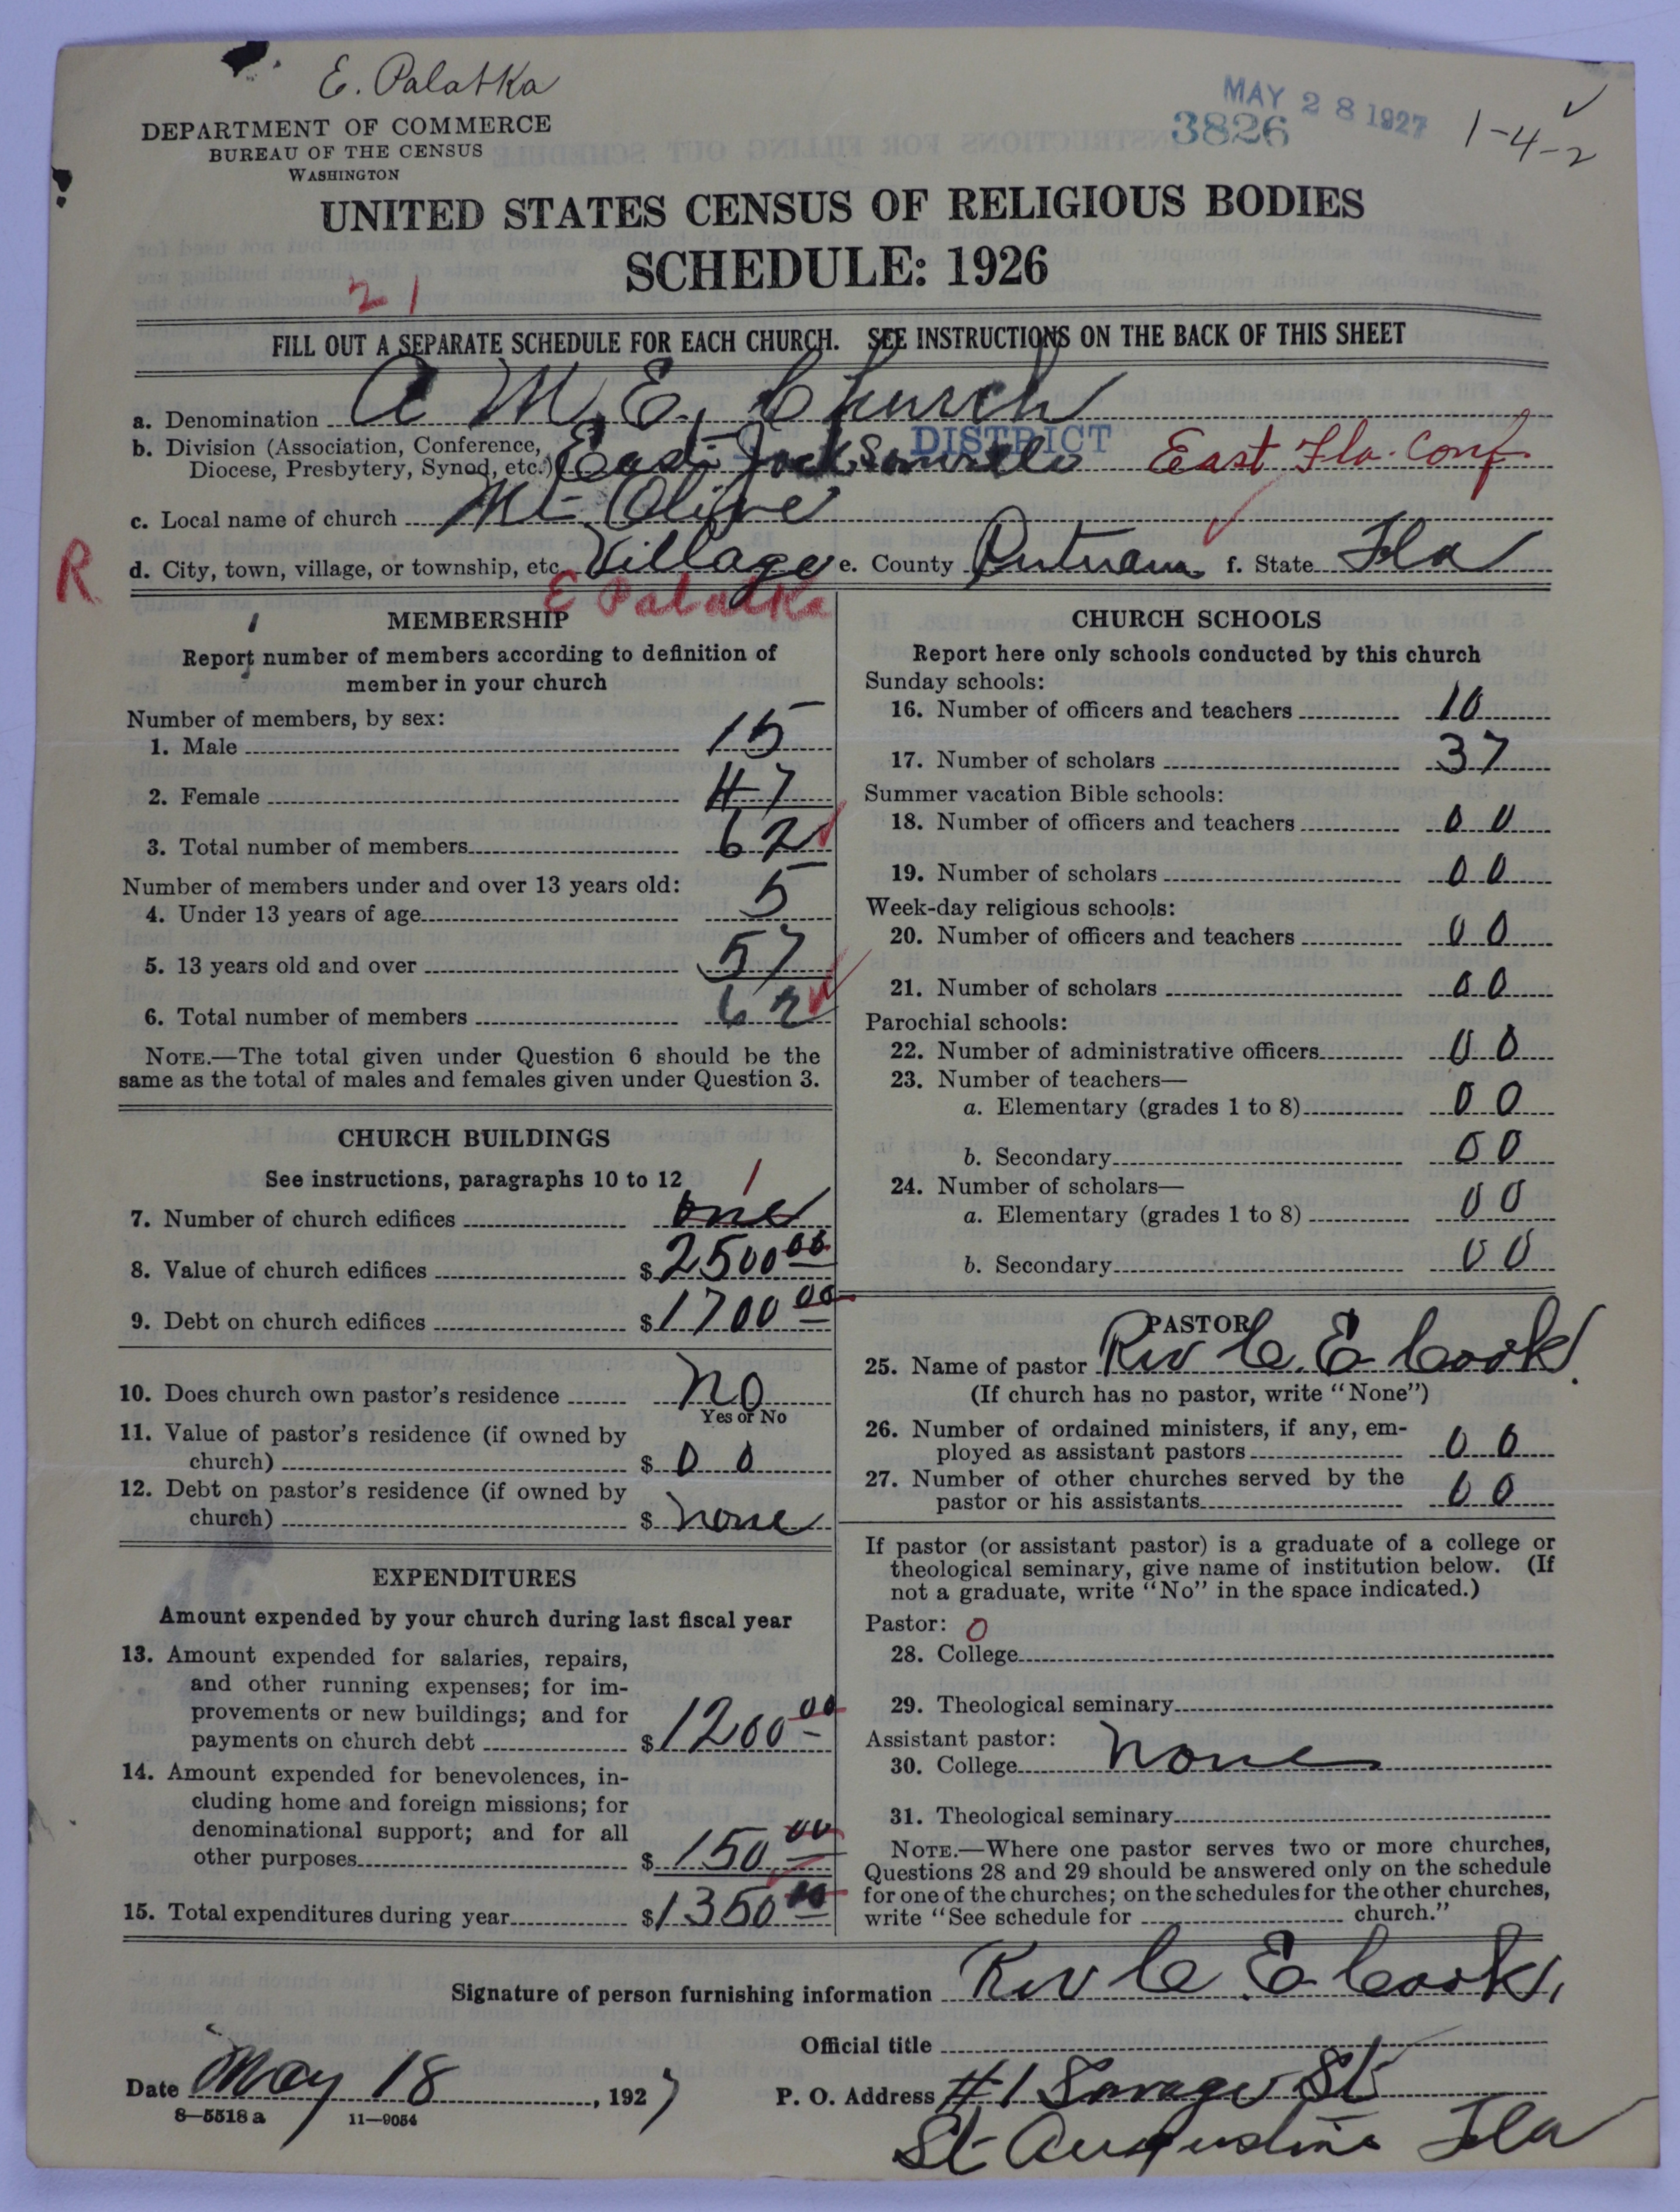 E. Palatka
DEPARTMENT OF COMMERCE
BUREAU OF THE CENSUS
WASHINGTON
MAY 28 1927
3826
1-4-2
UNITED STATES CENSUS OF RELIGIOUS BODIES
SCHEDULE: 1926
21
FILL OUT A SEPARATE SCHEDULE FOR EACH CHURCH. SEE INSTRUCTIONS ON THE BACK OF THIS SHEET
a. Denomination A M. E. Church
b. Division (Association, Conference,
Diocese, Presbytery, Synod, etc.) East Jacksonville DISTRICT East Fla. Conf
c. Local name of church Mt. Olive
R
d. City, town, village, or township, etc. Village e. County Putnam f. State Fla
E Palatka
MEMBERSHIP
Report number of members according to definition of
member in your church
Number of members, by sex:
1. Male 15
2. Female 47
3. Total number of members 62
Number of members under and over 13 years old:
4. Under 13 years of age 5
5. 13 years old and over 57
6. Total number of members 62
NOTE.—The total given under Question 6 should be the
same as the total of males and females given under Question 3.
CHURCH BUILDINGS
See instructions, paragraphs 10 to 12
1
7. Number of church edifices one
8. Value of church edifices $ 2500 00
9. Debt on church edifices $ 1700 00
10. Does church own pastor's residence No
Yes or No
11. Value of pastor's residence (if owned by
church) $ 0 0
12. Debt on pastor's residence (if owned by
church) $ none
EXPENDITURES
Amount expended by your church during last fiscal year
13. Amount expended for salaries, repairs,
and other running expenses; for im-
provements or new buildings; and for
payments on church debt $ 1200 00
14. Amount expended for benevolences, in-
cluding home and foreign missions; for
denominational support; and for all
other purposes $ 150 00
15. Total expenditures during year $ 1350 00
CHURCH SCHOOLS
Report here only schools conducted by this church
Sunday schools:
16. Number of officers and teachers 10
17. Number of scholars 37
Summer vacation Bible schools:
18. Number of officers and teachers 0 0
19. Number of scholars 0 0
Week-day religious schools:
20. Number of officers and teachers 0 0
21. Number of scholars 0 0
Parochial schools:
22. Number of administrative officers 0 0
23. Number of teachers—
a. Elementary (grades 1 to 8) 0 0
b. Secondary 0 0
24. Number of scholars—
a. Elementary (grades 1 to 8) 0 0
b. Secondary 0 0
PASTOR
25. Name of pastor Rev C. E Cook.
(If church has no pastor, write "None")
26. Number of ordained ministers, if any, em-
ployed as assistant pastors 0 0
27. Number of other churches served by the
pastor or his assistants 0 0
If pastor (or assistant pastor) is a graduate of a college or
theological seminary, give name of institution below. (If
not a graduate, write "No" in the space indicated.)
Pastor: 0
28. College
29. Theological seminary
Assistant pastor:
30. College none
31. Theological seminary
NOTE.—Where one pastor serves two or more churches,
Questions 28 and 29 should be answered only on the schedule
for one of the churches; on the schedules for the other churches,
write "See schedule for church."
Signature of person furnishing information Rev C. E Cook,
Official title
Date May 18, 1927
P. O. Address #1 Savage St
St Augustine Fla
8—5518 a 11—9054